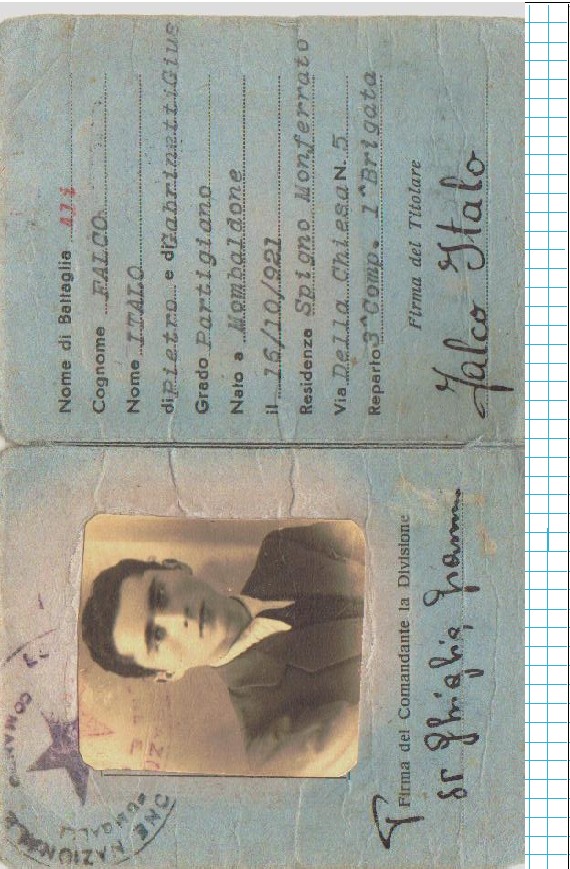 Nome di Battaglia Alì
Cognome FALCO
Nome ITALO
di Pietro e di Gabrinetti Gius
Grado Partigiano
Nato a Mombaldone
il 16/10/921
Residenza Spigno Monferrato
Via Della Chiesa N. 5
Reparto 3^Comp. 1^Brigata
Firma del Titolare
Falco Italo
COMANDO
ONE NAZIONALE
Firma del Comandante la Divisione